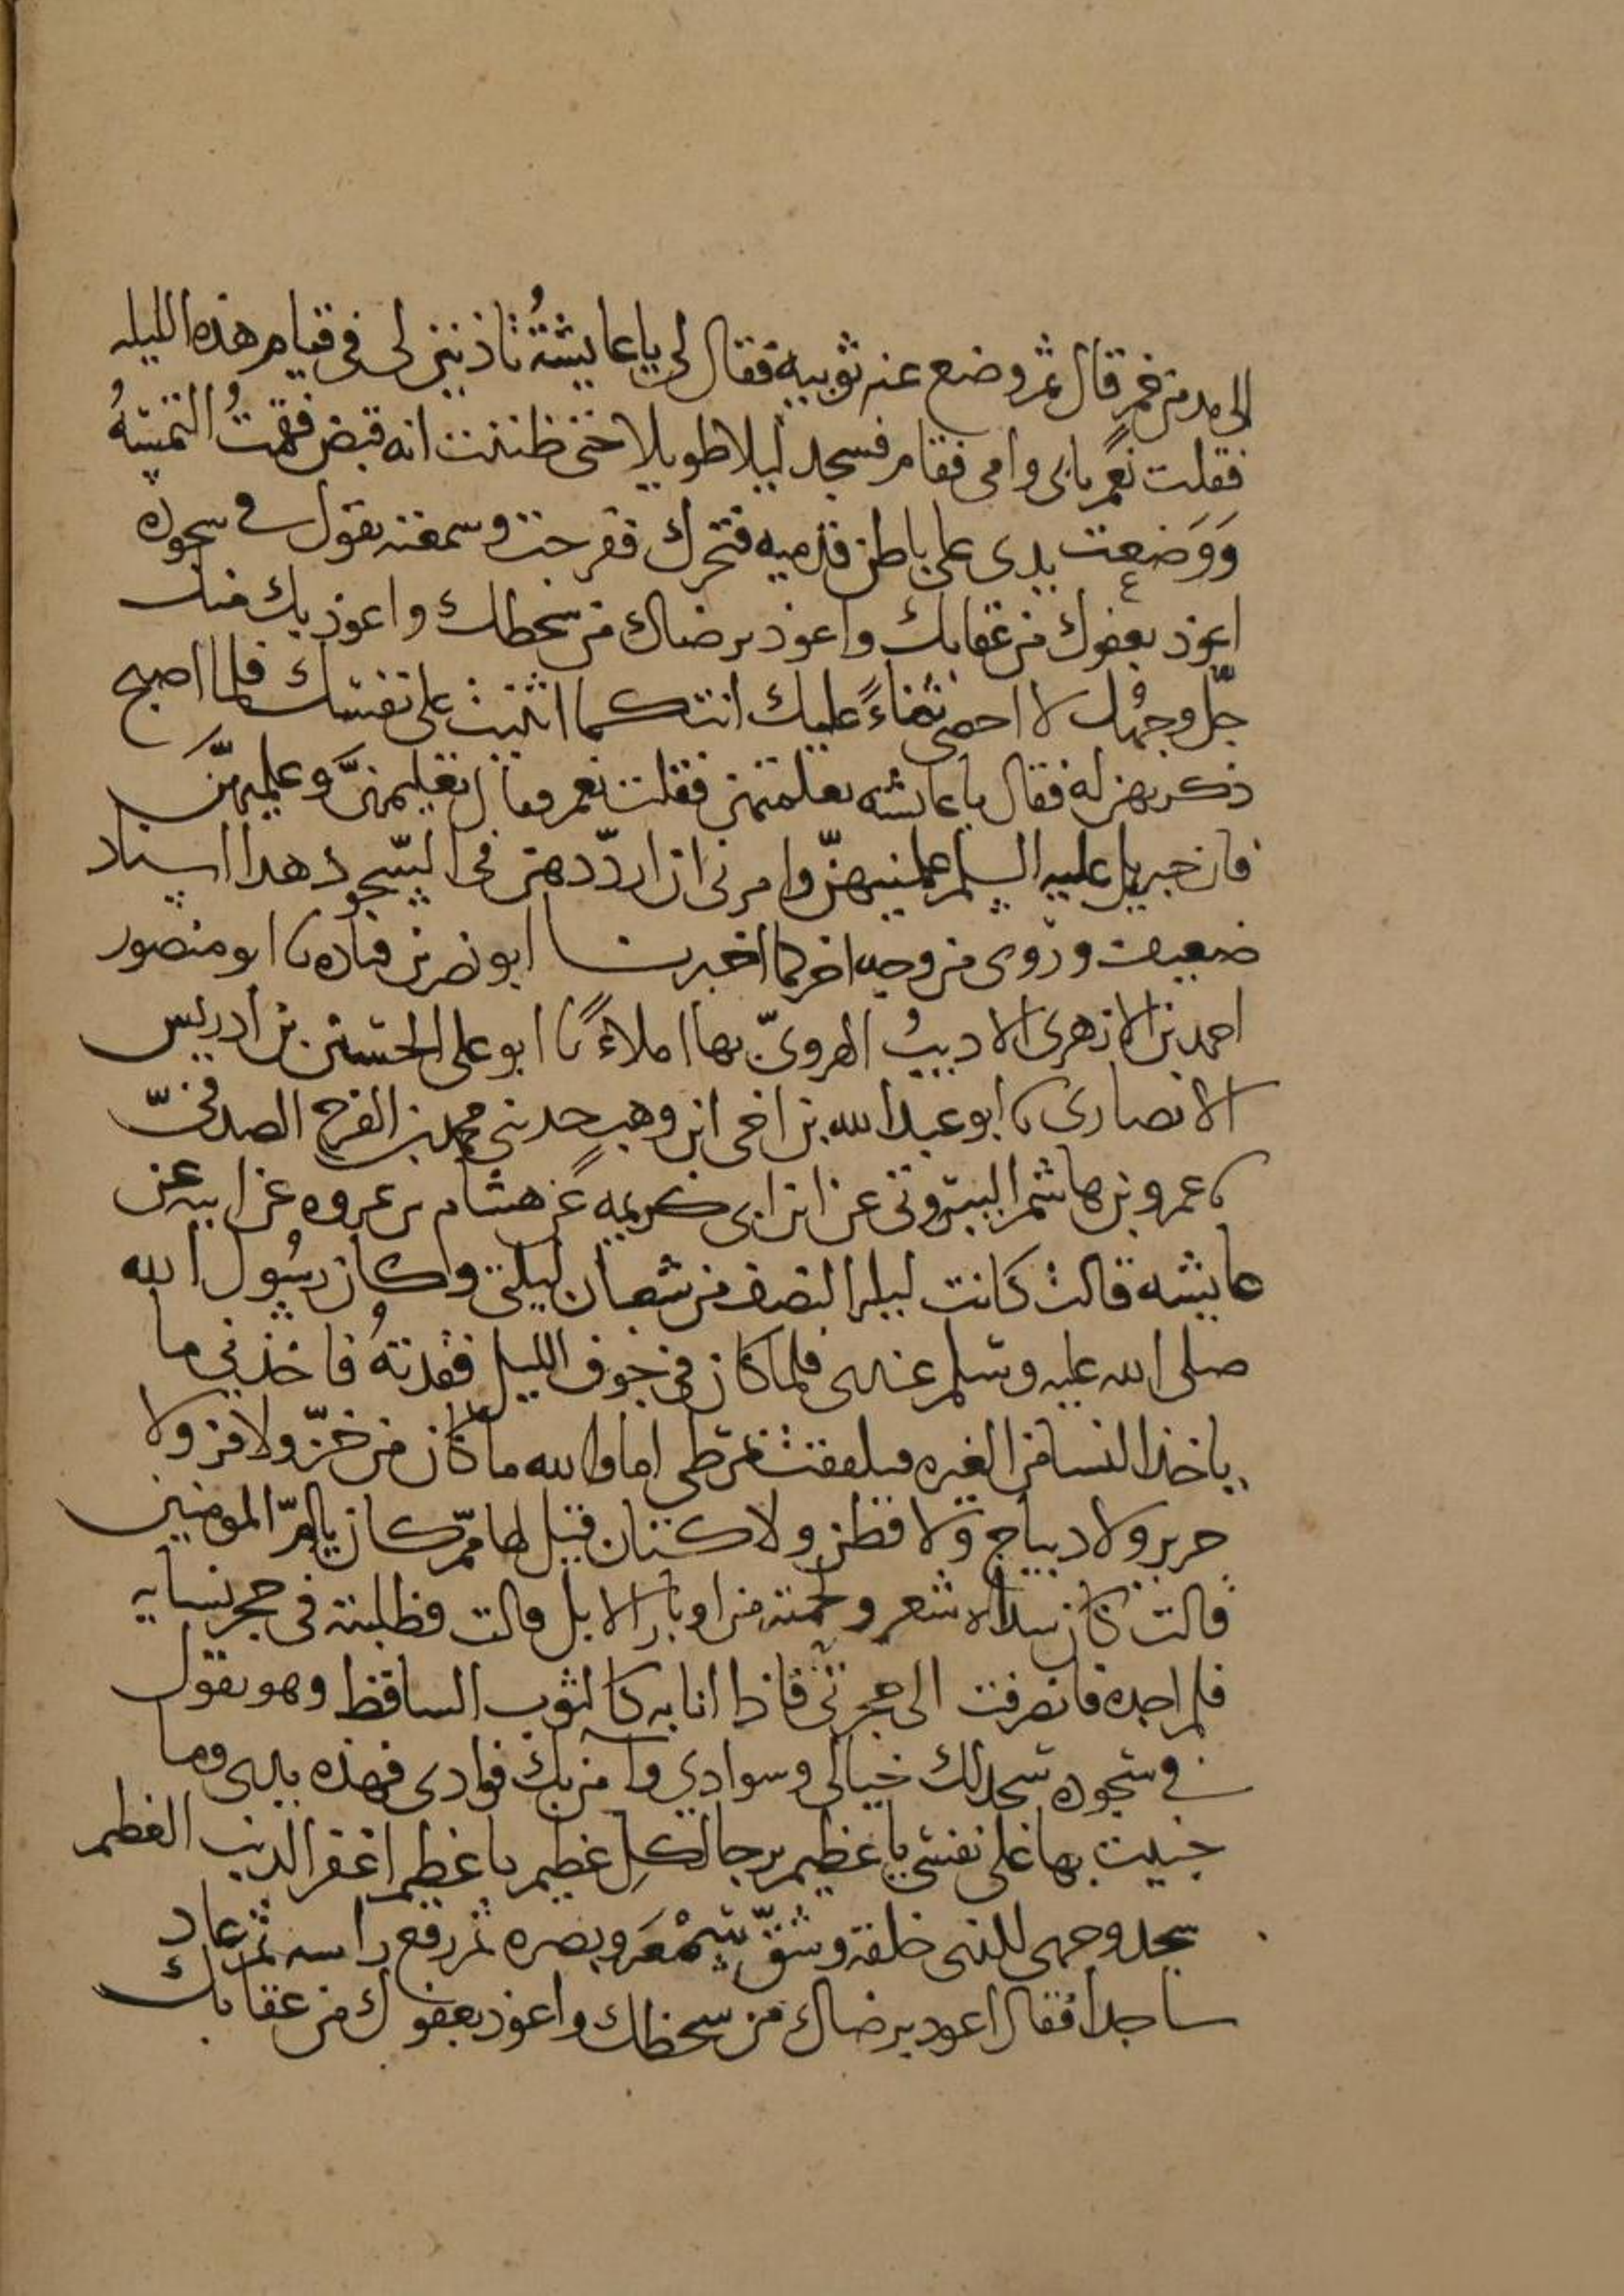 الى مدمن خمر قال ثم وضع عنه ثوبيه فقال لى يا عايشةُ تاذنين لى فى قيام هذه الليله
فقلت نعم بابى وامى فقام فسجد ليلا طويلا حتى ظننت انه قبض فقمتُ التمسهُ
وَوَضعت يدى على باطن قدميه فتحرك ففرحت وسمعته يقول فى سجوده
اعوذ بعفوك من عقابك واعوذ برضاك من سخطك واعوذ بك منك
جلّ وجهُك لا احصى ثناءً عليك انت كما اثنيت على نفسك فلما اصبح
ذكرتهن له فقال يا عائشه تعلمتهن فقلت نعم فقال تعلميهنَّ وعلميهنَّ
فان جبريل عليه السلم علمنيهنّ وامرنى ان ارددهن فى السجود هدا اسناد
ضعيف وروى من وجه اخر كما اخبرنا ابو نصر بن قتاده نا ابو منصور
احمد بن الازهرى الاديبُ الهروىّ بها املاءً نا ابو على الحسين بن ادريس
الانصارى نا ابو عبد الله بن اخى ابن وهبٍ حدثنى محمد بن الفرج الصدفىّ
نا عمرو بن هاشم البيروتى عن ابن ابى كريمه عن هشام بن عروه عن ابيه عن
عايشه قالت كانت ليله النصف من شعبان ليلتى وكان رسُولُ الله
صلى الله عليه وسلم عندى فلما كان فى جوف الليل فقدتهُ فاخذنى ما
ياخذ النسا من الغيره فتلففت بمرطى اما والله ما كان من خزّ ولا قز ولا
حرير ولا ديباج ولا قطن ولا كتان قيل لها ممّ كان يا امّ المومنين
قالت كان سداه شعر ولحمته من اوبار الابل قالت فطلبته فى حجر نسايه
فلم اجده فانصرفت الى حجرتى فاذا انا به كالثوب الساقط وهو يقول
فى سجوده سجد لك خيالى وسوادى وآمن بك فوادى فهذه يدى وما
جنيت بها على نفسى يا عظيم يرجا لكلِ عظيم يا عظيم اغفر الذنب العظيم
سجد وجهى للذى خلقه وشقّ سَمْعَه وبصره ثم رفع راسه ثم عاد
ساجدا فقال اعوذ برضاك من سخطك واعوذ بعفوك من عقابك